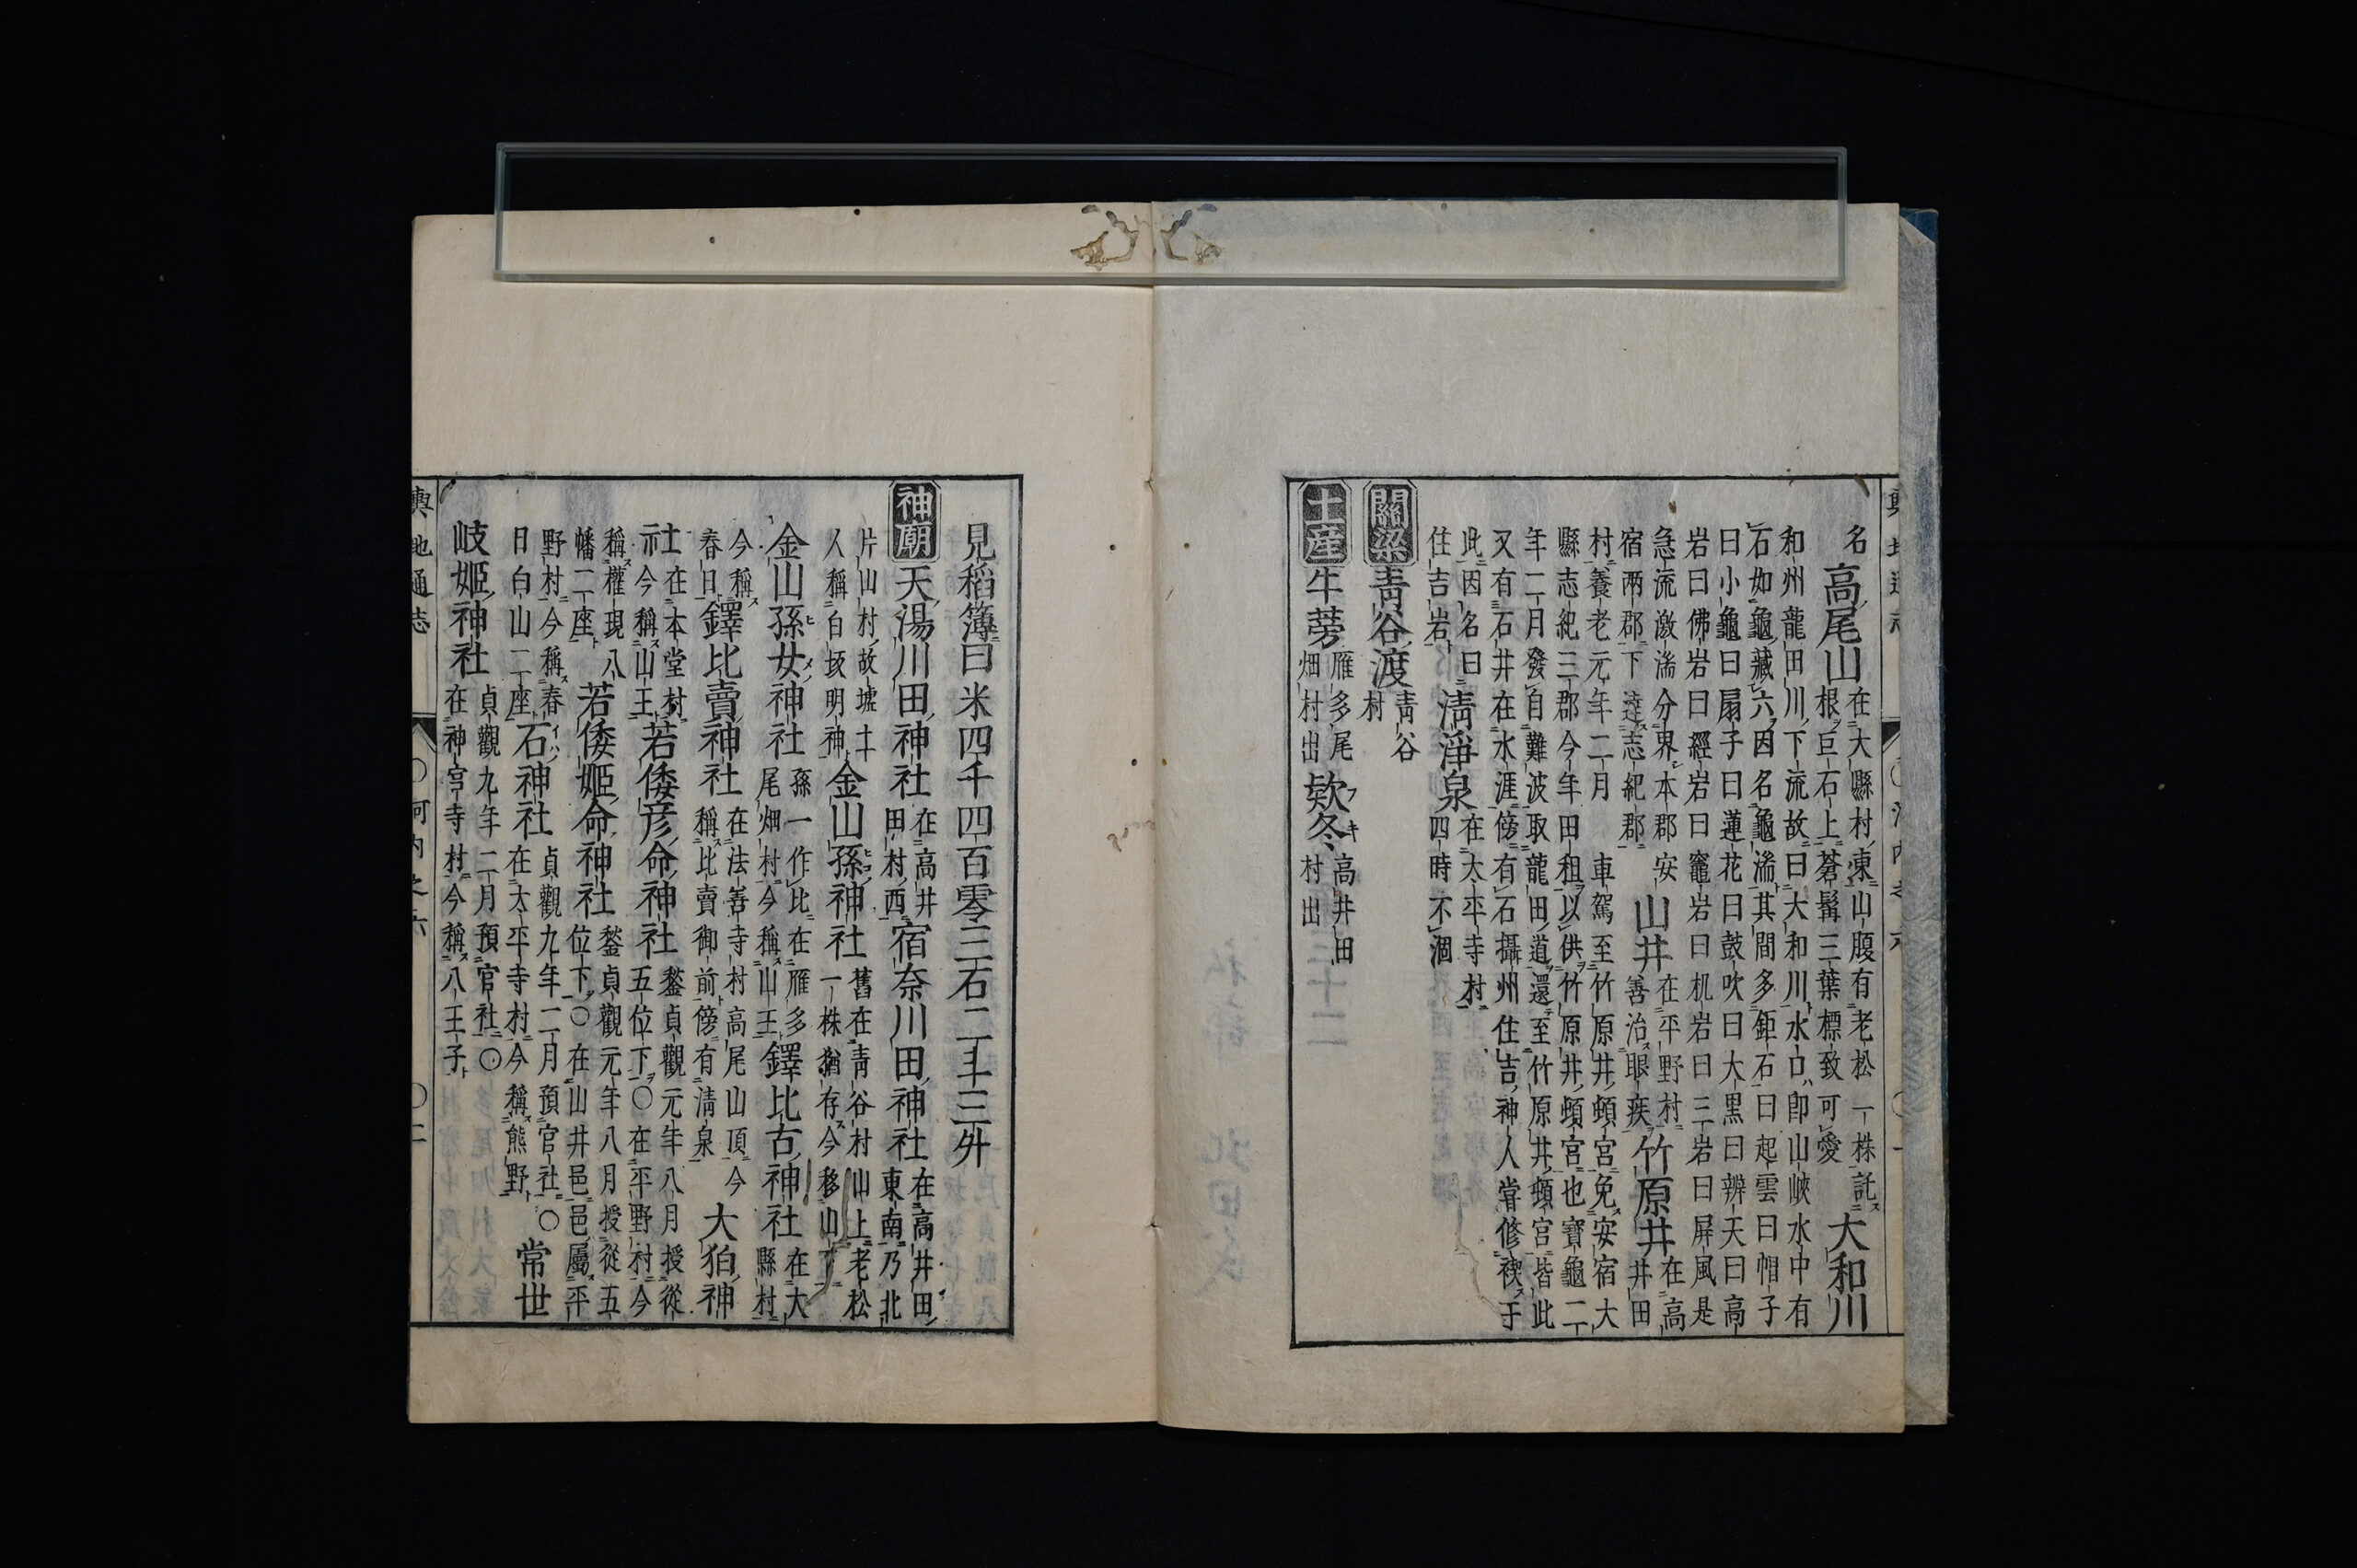 名高尾山在大縣村東山腹有老松一株託根巨石上蒼髯三葉標致可愛大和川
和州龍田川下流故曰大和川水口卽山峽水中有
石如龜藏六因名龜湍其間多鉅石曰起雲曰帽子
曰小龜曰扇子曰蓮花曰鼓吹曰大黒曰辨天曰高
岩曰佛岩曰經岩曰竈岩曰机岩曰三岩曰屏風是
急流激湍分界本郡安宿両郡下達志紀郡山井在平野村善治眼疾竹原井在高井田
村養老元年二月車駕至竹原井頓宮免安宿大
縣志紀三郡今年田租以供竹原井頓宮也寶龜二
年二月發自難波取龍田道還至竹原井頓宮皆此
又有石井在水涯傍有石攝州住吉神人甞修禊于
此因名曰住吉岩清淨泉在太平寺村四時不涸
關梁靑谷渡靑谷村
土産牛蒡雁多尾畑村出欵冬フキ高井田村出
見稻簿曰米四千四百零三石二斗三升
神廟天湯川田神社在高井田村西宿奈川田神社在高井田東南乃北
片山村故墟土人稱白坂明神金山孫神社舊在靑谷村山上老松一株猶存今移山下
金山孫女神社孫一作比在雁多尾畑村今稱山王鐸比古神社在大縣村
今稱春日鐸比賣神社在法善寺村高尾山頂今稱比賣御前傍有清泉大狛神
社在本堂村今稱山王若倭彦命神社鍫貞觀元年八月授從五位下〇在平野村今
稱權現八幡二座若倭姬命神社鍫貞觀元年八月授從五位下〇在山井邑邑屬平
野村今稱春日白山二座石神社貞觀九年二月預官社〇在太平寺村今稱熊野常世
岐姬神社貞觀九年二月預官社〇在神宮寺村今稱八王子
輿地通志　〇河内之六　〇二